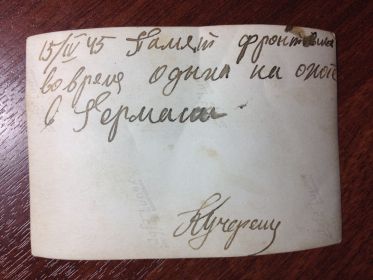 15/IV 45 Памят фронтовика
во время отдыха на охоте
в Германии
Кучереш